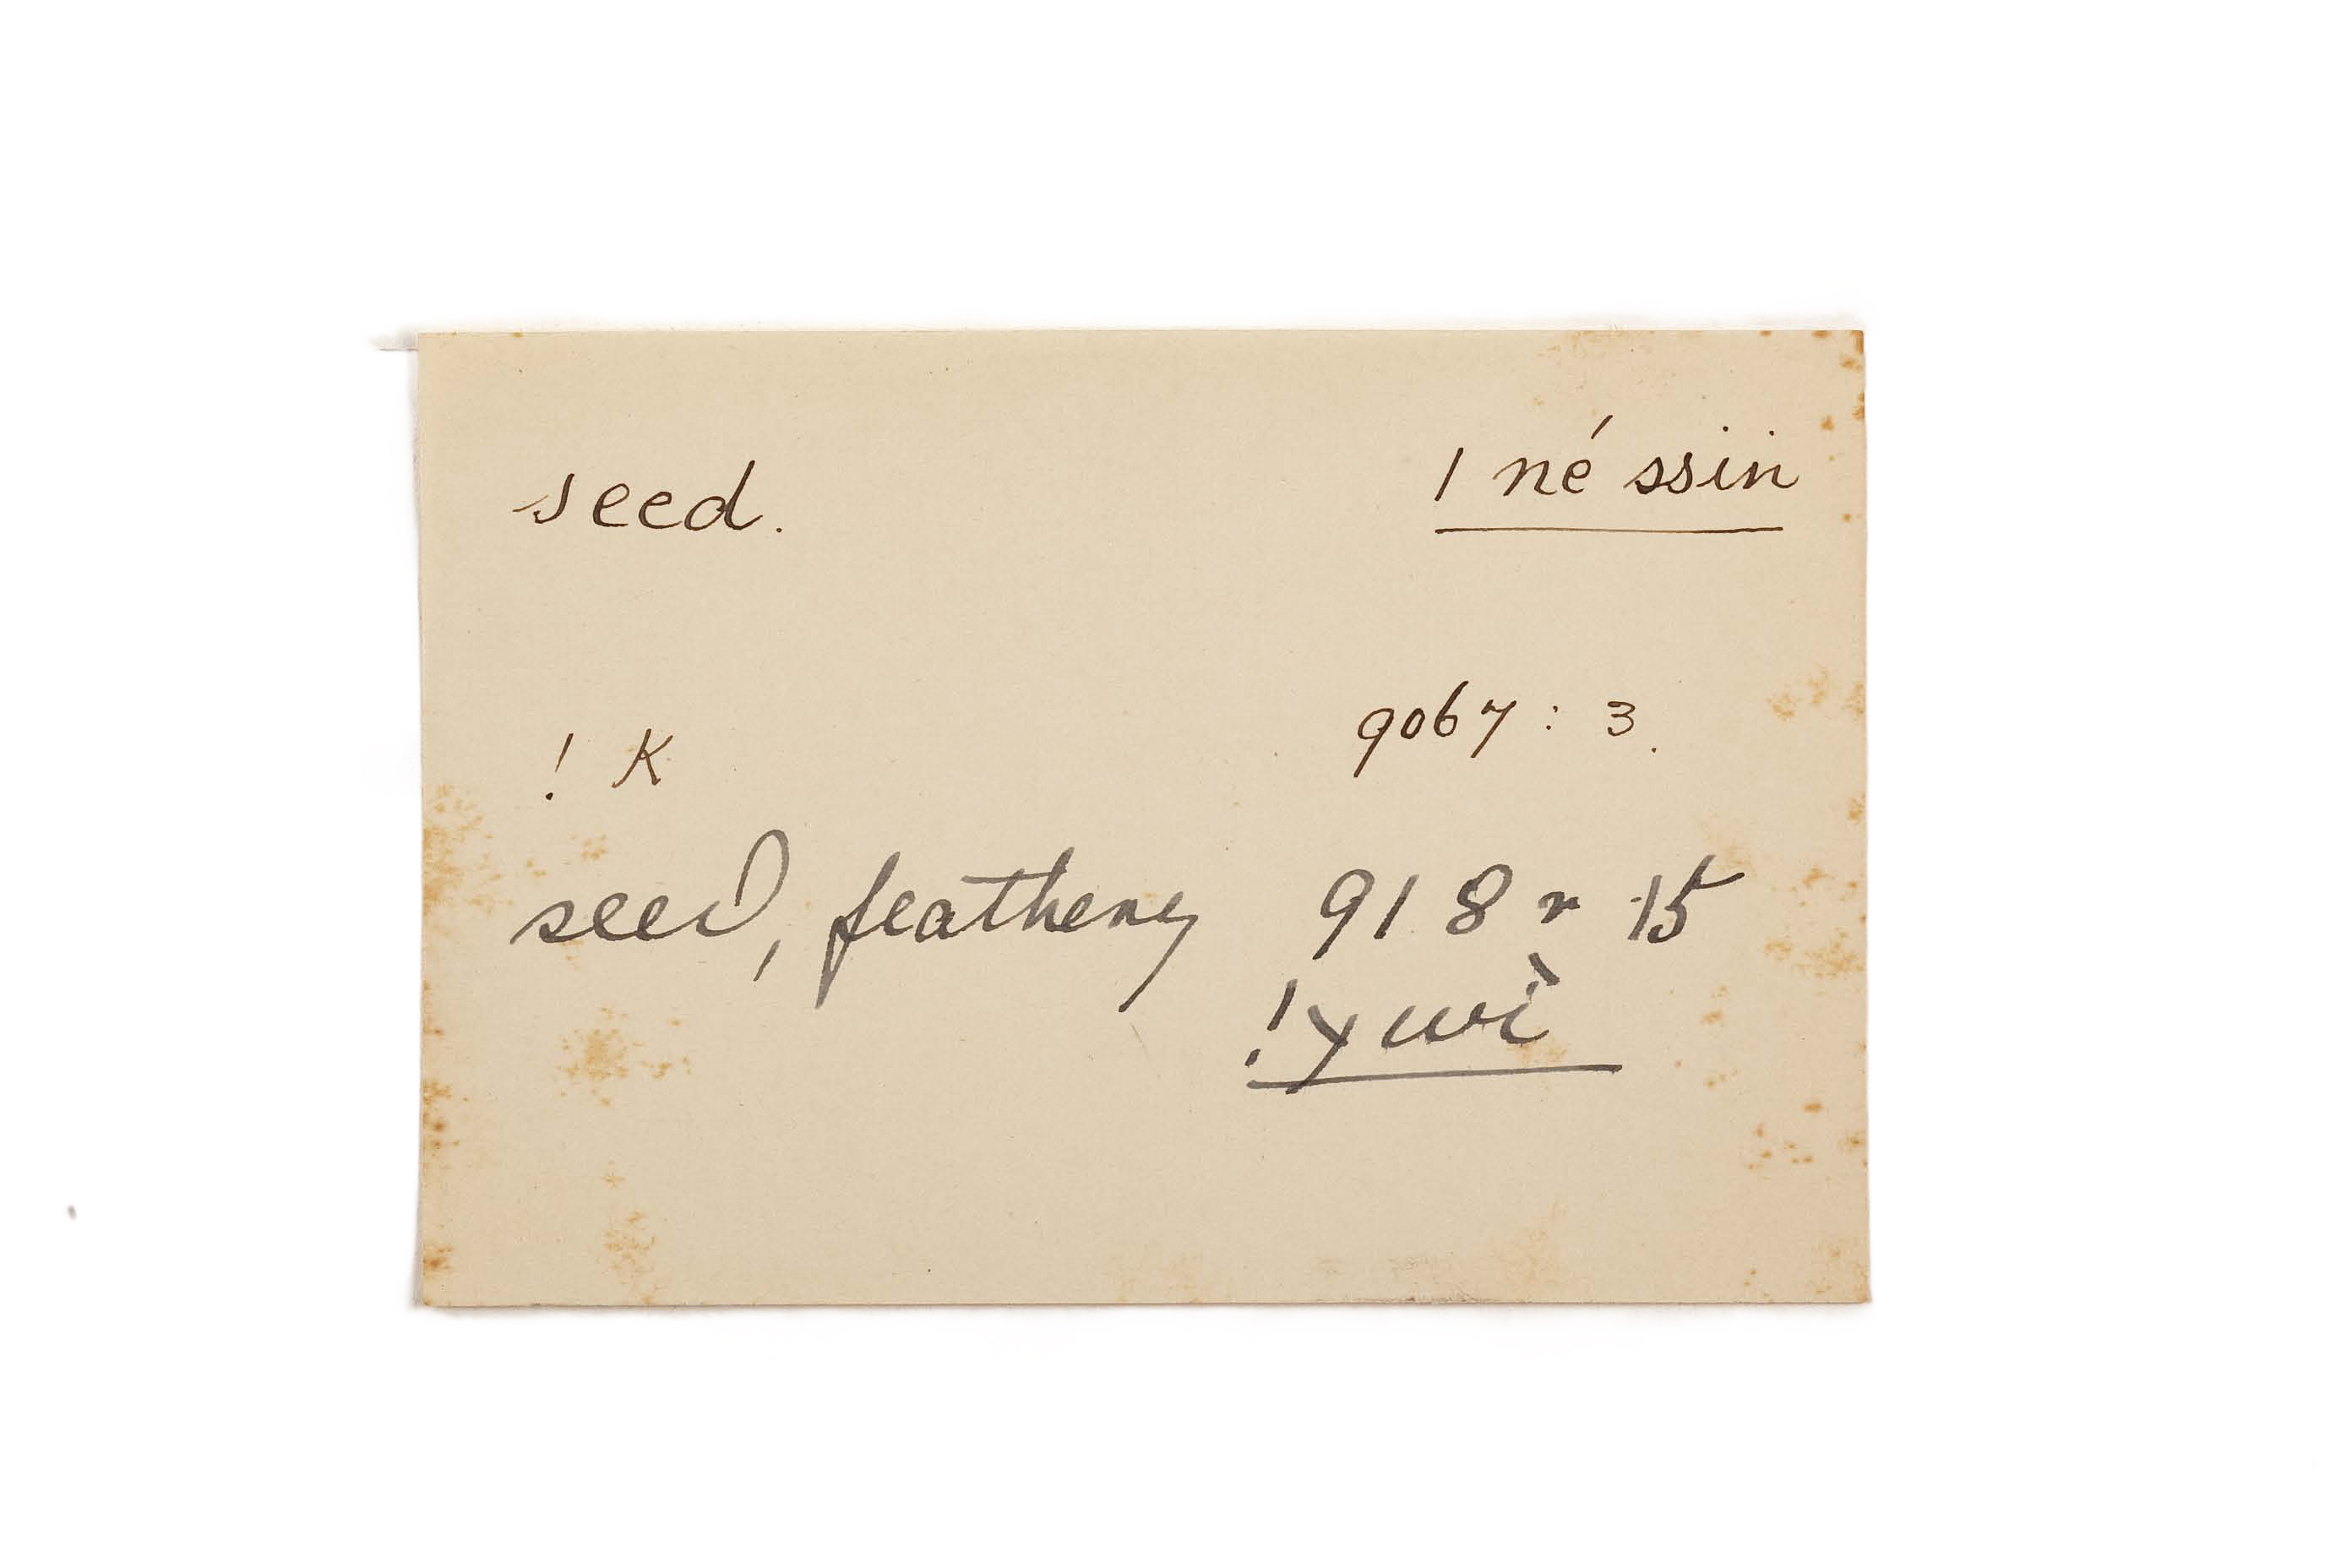 seed. | né ssin
9067 : 3.
! K
seed, feathery 918 r 15
!χwì